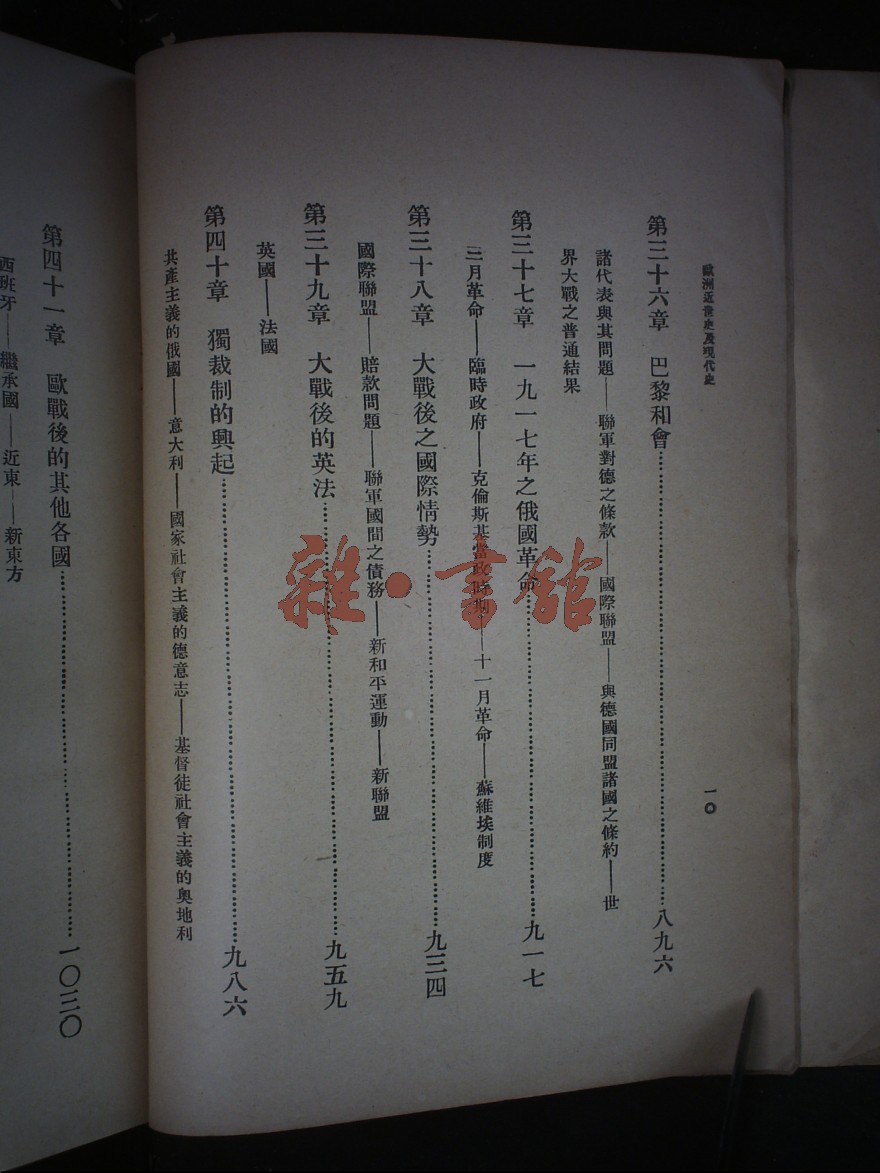 歐洲近世史及現代史
一〇
第三十六章 巴黎和會……八九六
諸代表與其問題——聯軍對德之條款——國際聯盟——與德國同盟諸國之條約——世
界大戰之普通結果
第三十七章 一九一七年之俄國革命……九一七
三月革命——臨時政府——克倫斯基當政時期——十一月革命——蘇維埃制度
第三十八章 大戰後之國際情勢……九三四
國際聯盟——賠款問題——聯軍國間之債務——新和平運動——新聯盟
第三十九章 大戰後的英法……九五九
英國——法國
第四十章 獨裁制的興起……九八六
共產主義的俄國——意大利——國家社會主義的德意志——基督徒社會主義的奧地利
第四十一章 歐戰後的其他各國……一〇三〇
西班牙——繼承國——近東——新東方
雜·書館